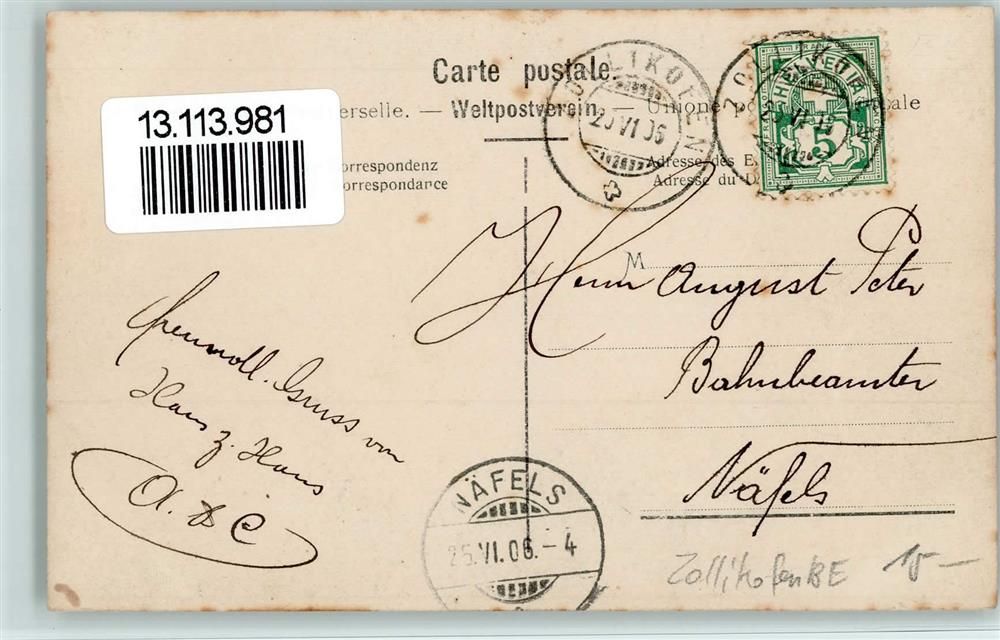 Carte postale.
13.113.981
erselle. — Weltpostverein. — Unione po ale
orrespondenz
orrespondance
Adresse des E
Adresse du D
ZOLLIKOFEN
25.VI.06
ZOLLIKOFEN
HELVETIA
5
M
Herrn August Peter
Bahnbeamter
Näfels
Gruss von
Haus z. Haus
A. & C
NÄFELS
25.VI.06.–4
Zollikofen BE 15–